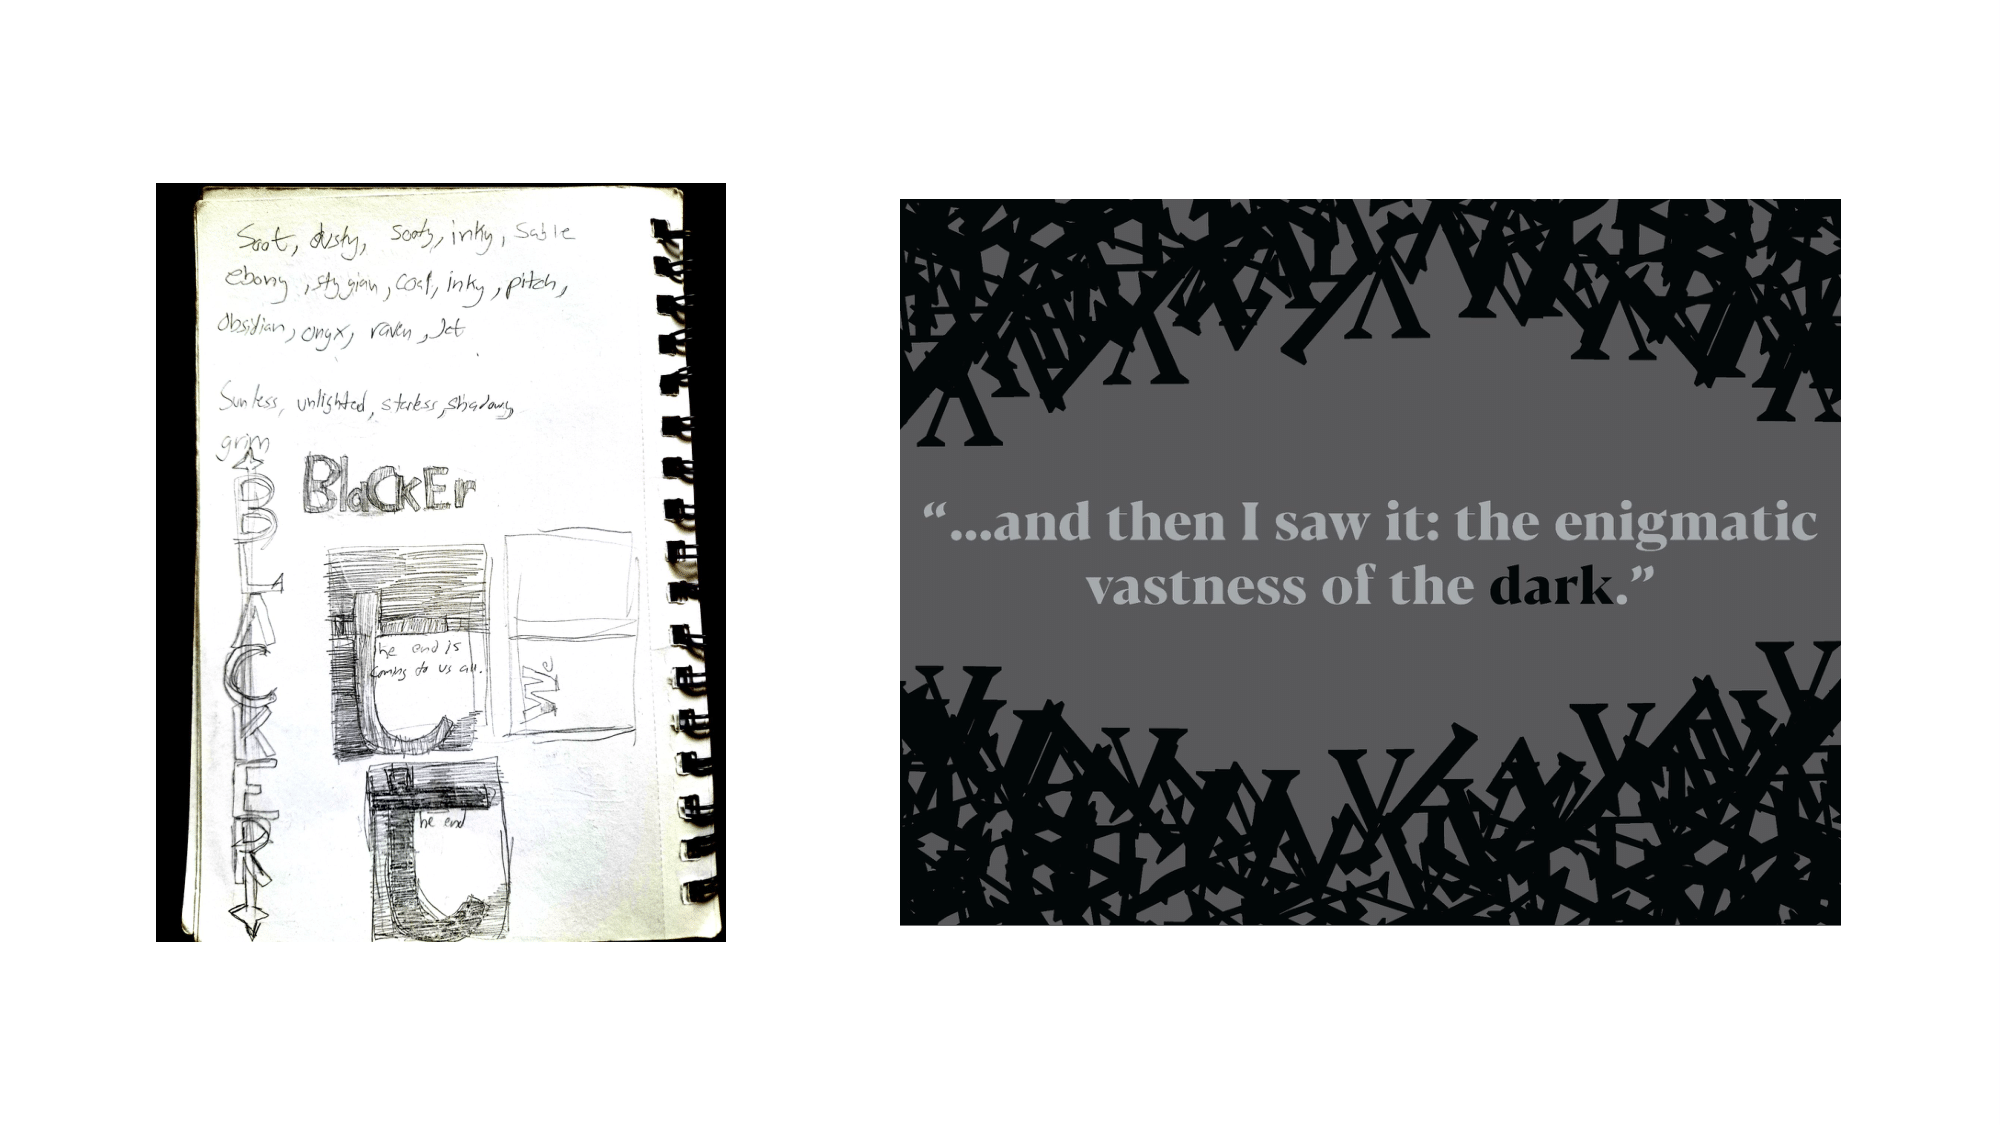 Soot, dusty, sooty, inky, Sable
ebony, stygian, coal, inky, pitch,
Obsidian, onyx, raven, Jet
Sunless, unlighted, starless, shadowy
grim
BlacKEr
BLACKER
the end is
coming to us all.
We
the end
“...and then I saw it: the enigmatic
vastness of the dark.”